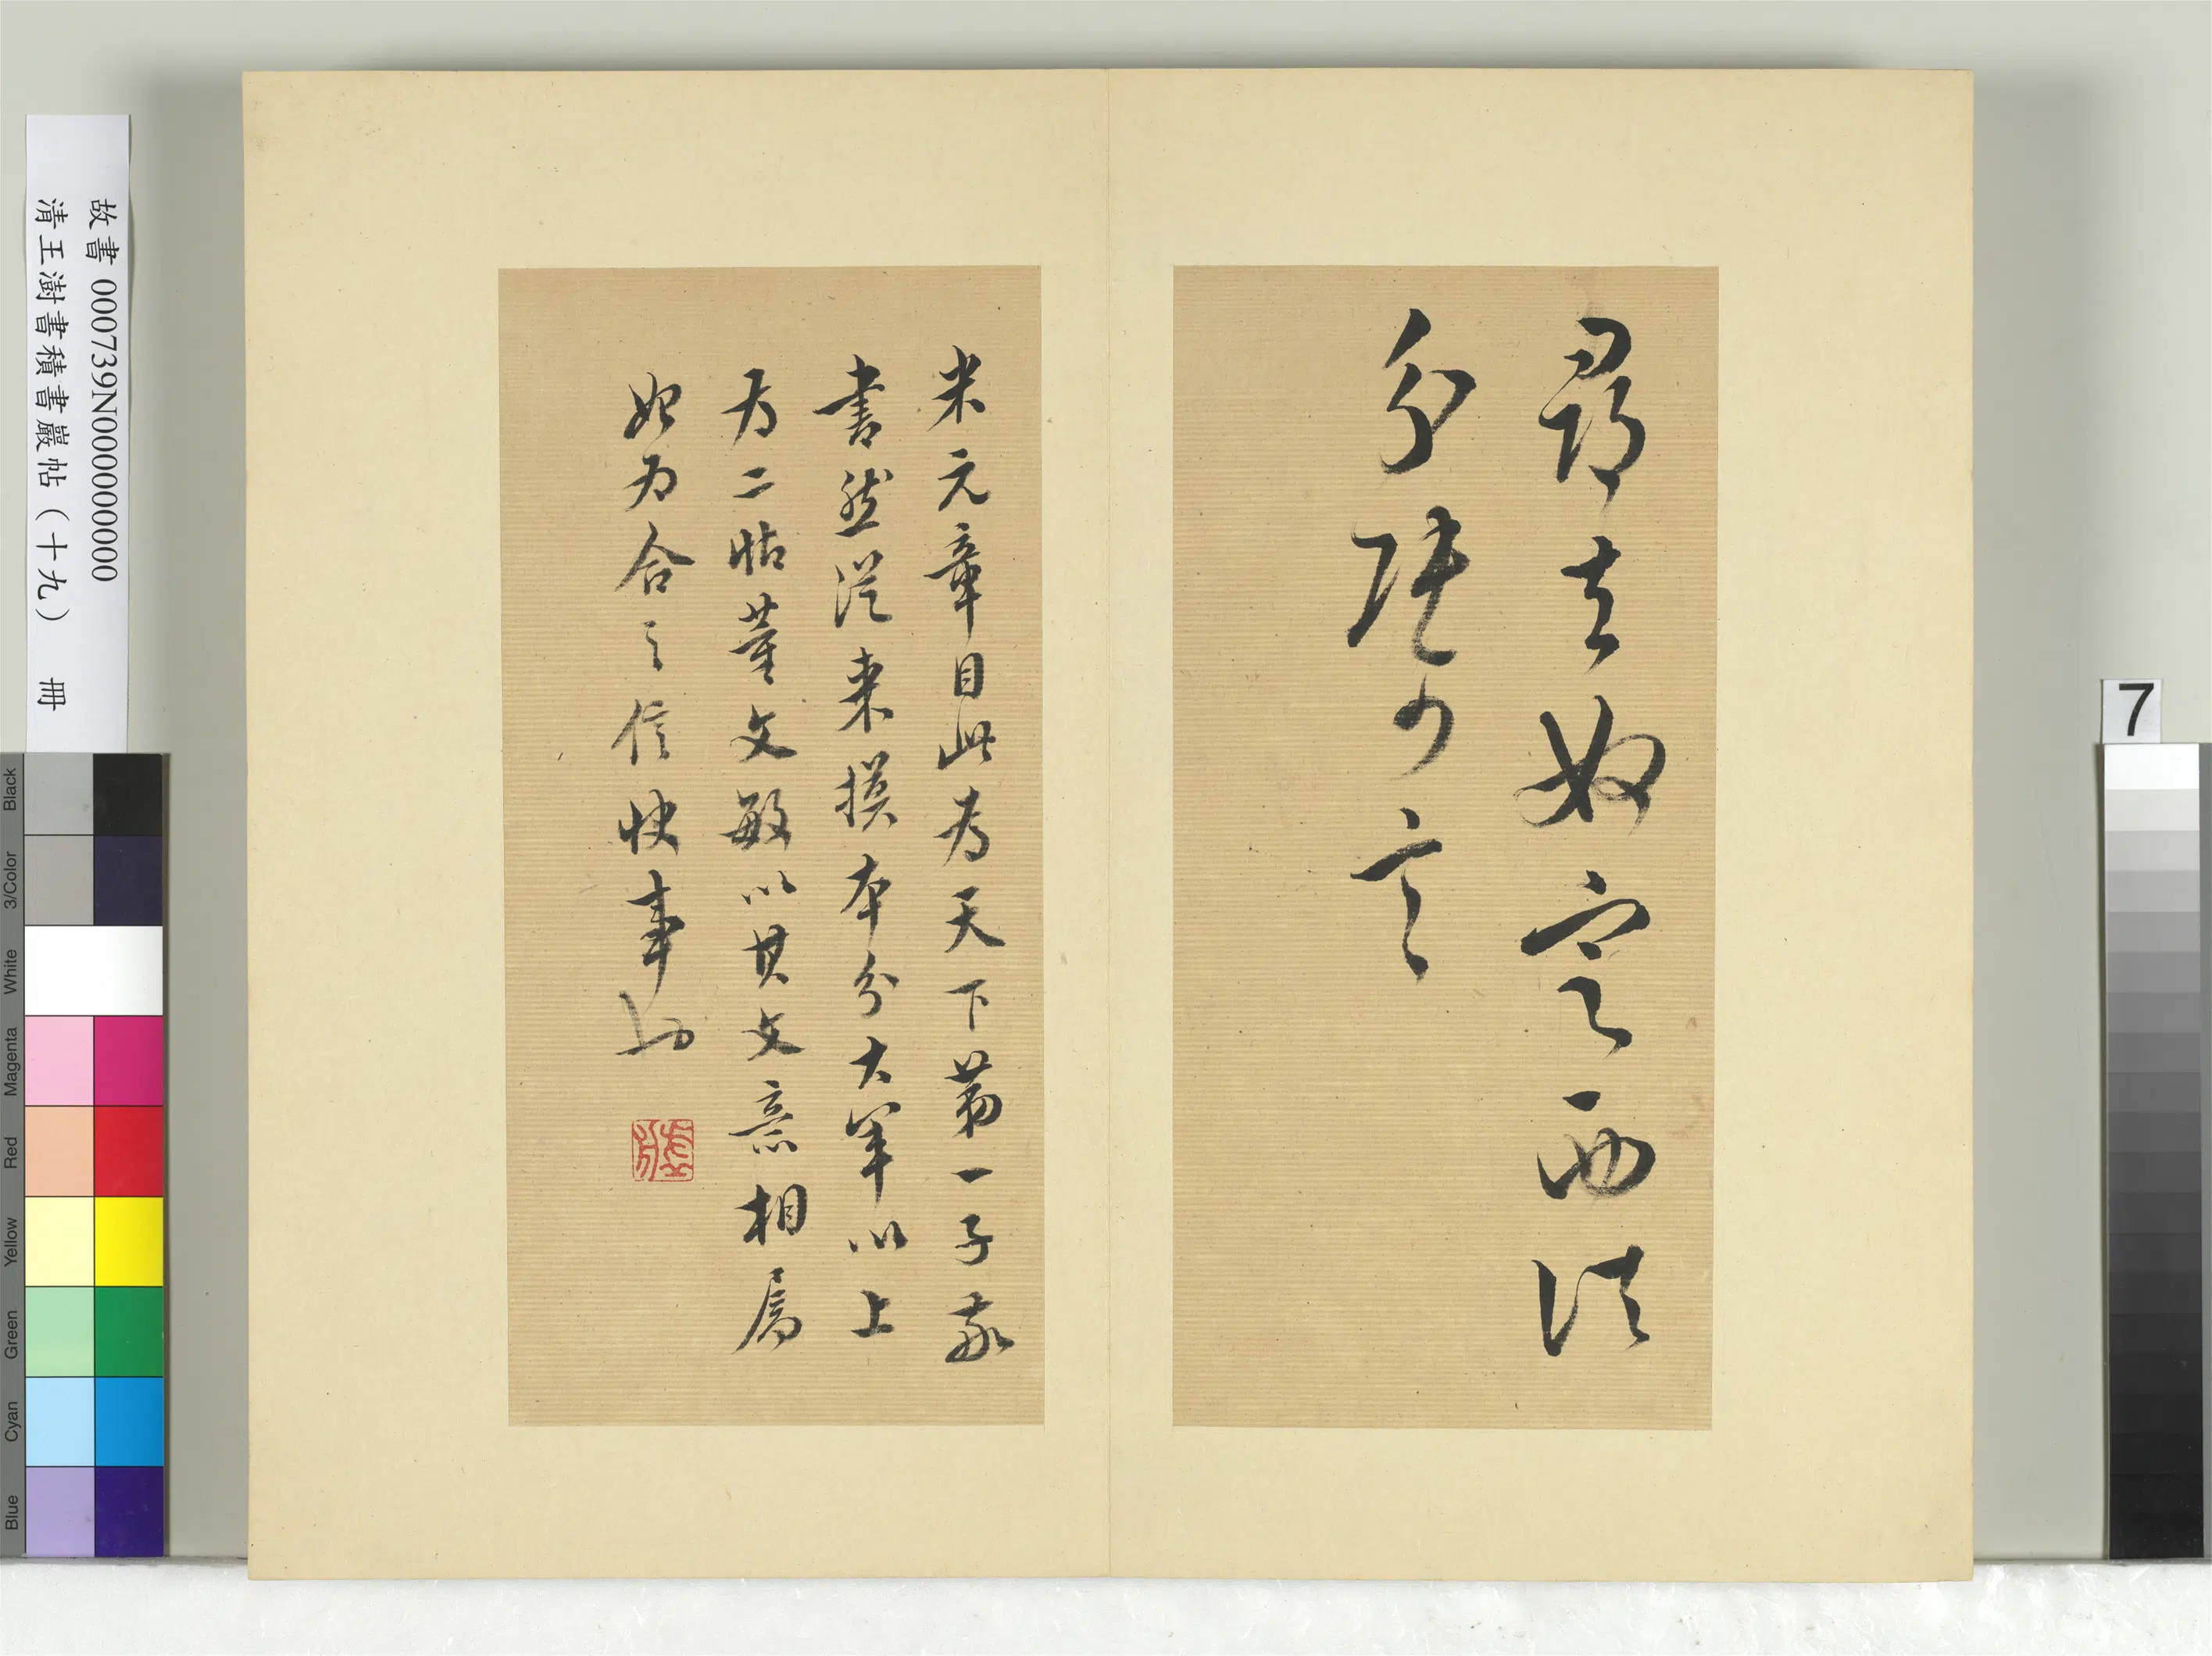 尋去奴定西諸
分張可言
米元章目此為天下第一子敬
書然從來摸本分大軍以上
為二帖董文敏以其文意相屬
始為合之信快事
故書 000739N000000000
清王澍書積書巖帖（十九） 冊
Black
3/Color
White
Magenta
Red
Yellow
Green
Cyan
Blue
7